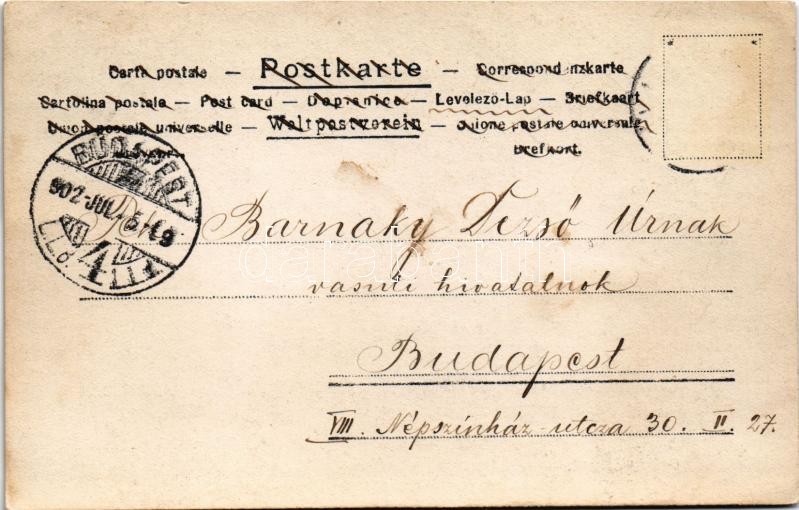 Carta postale — Postkarte — Correspondenzkarte
Cartolina postale — Post card — Dopisnice — Levelező-Lap — Briefkaart
Union postale universelle — Weltpostverein — Unione postale universale
Brefkort.
BUDAPEST
902 JUL
Barnaky Dezső Úrnak
vasuti hivatalnok
Budapest
VIII. Népszínház-utcza 30. II. 27.